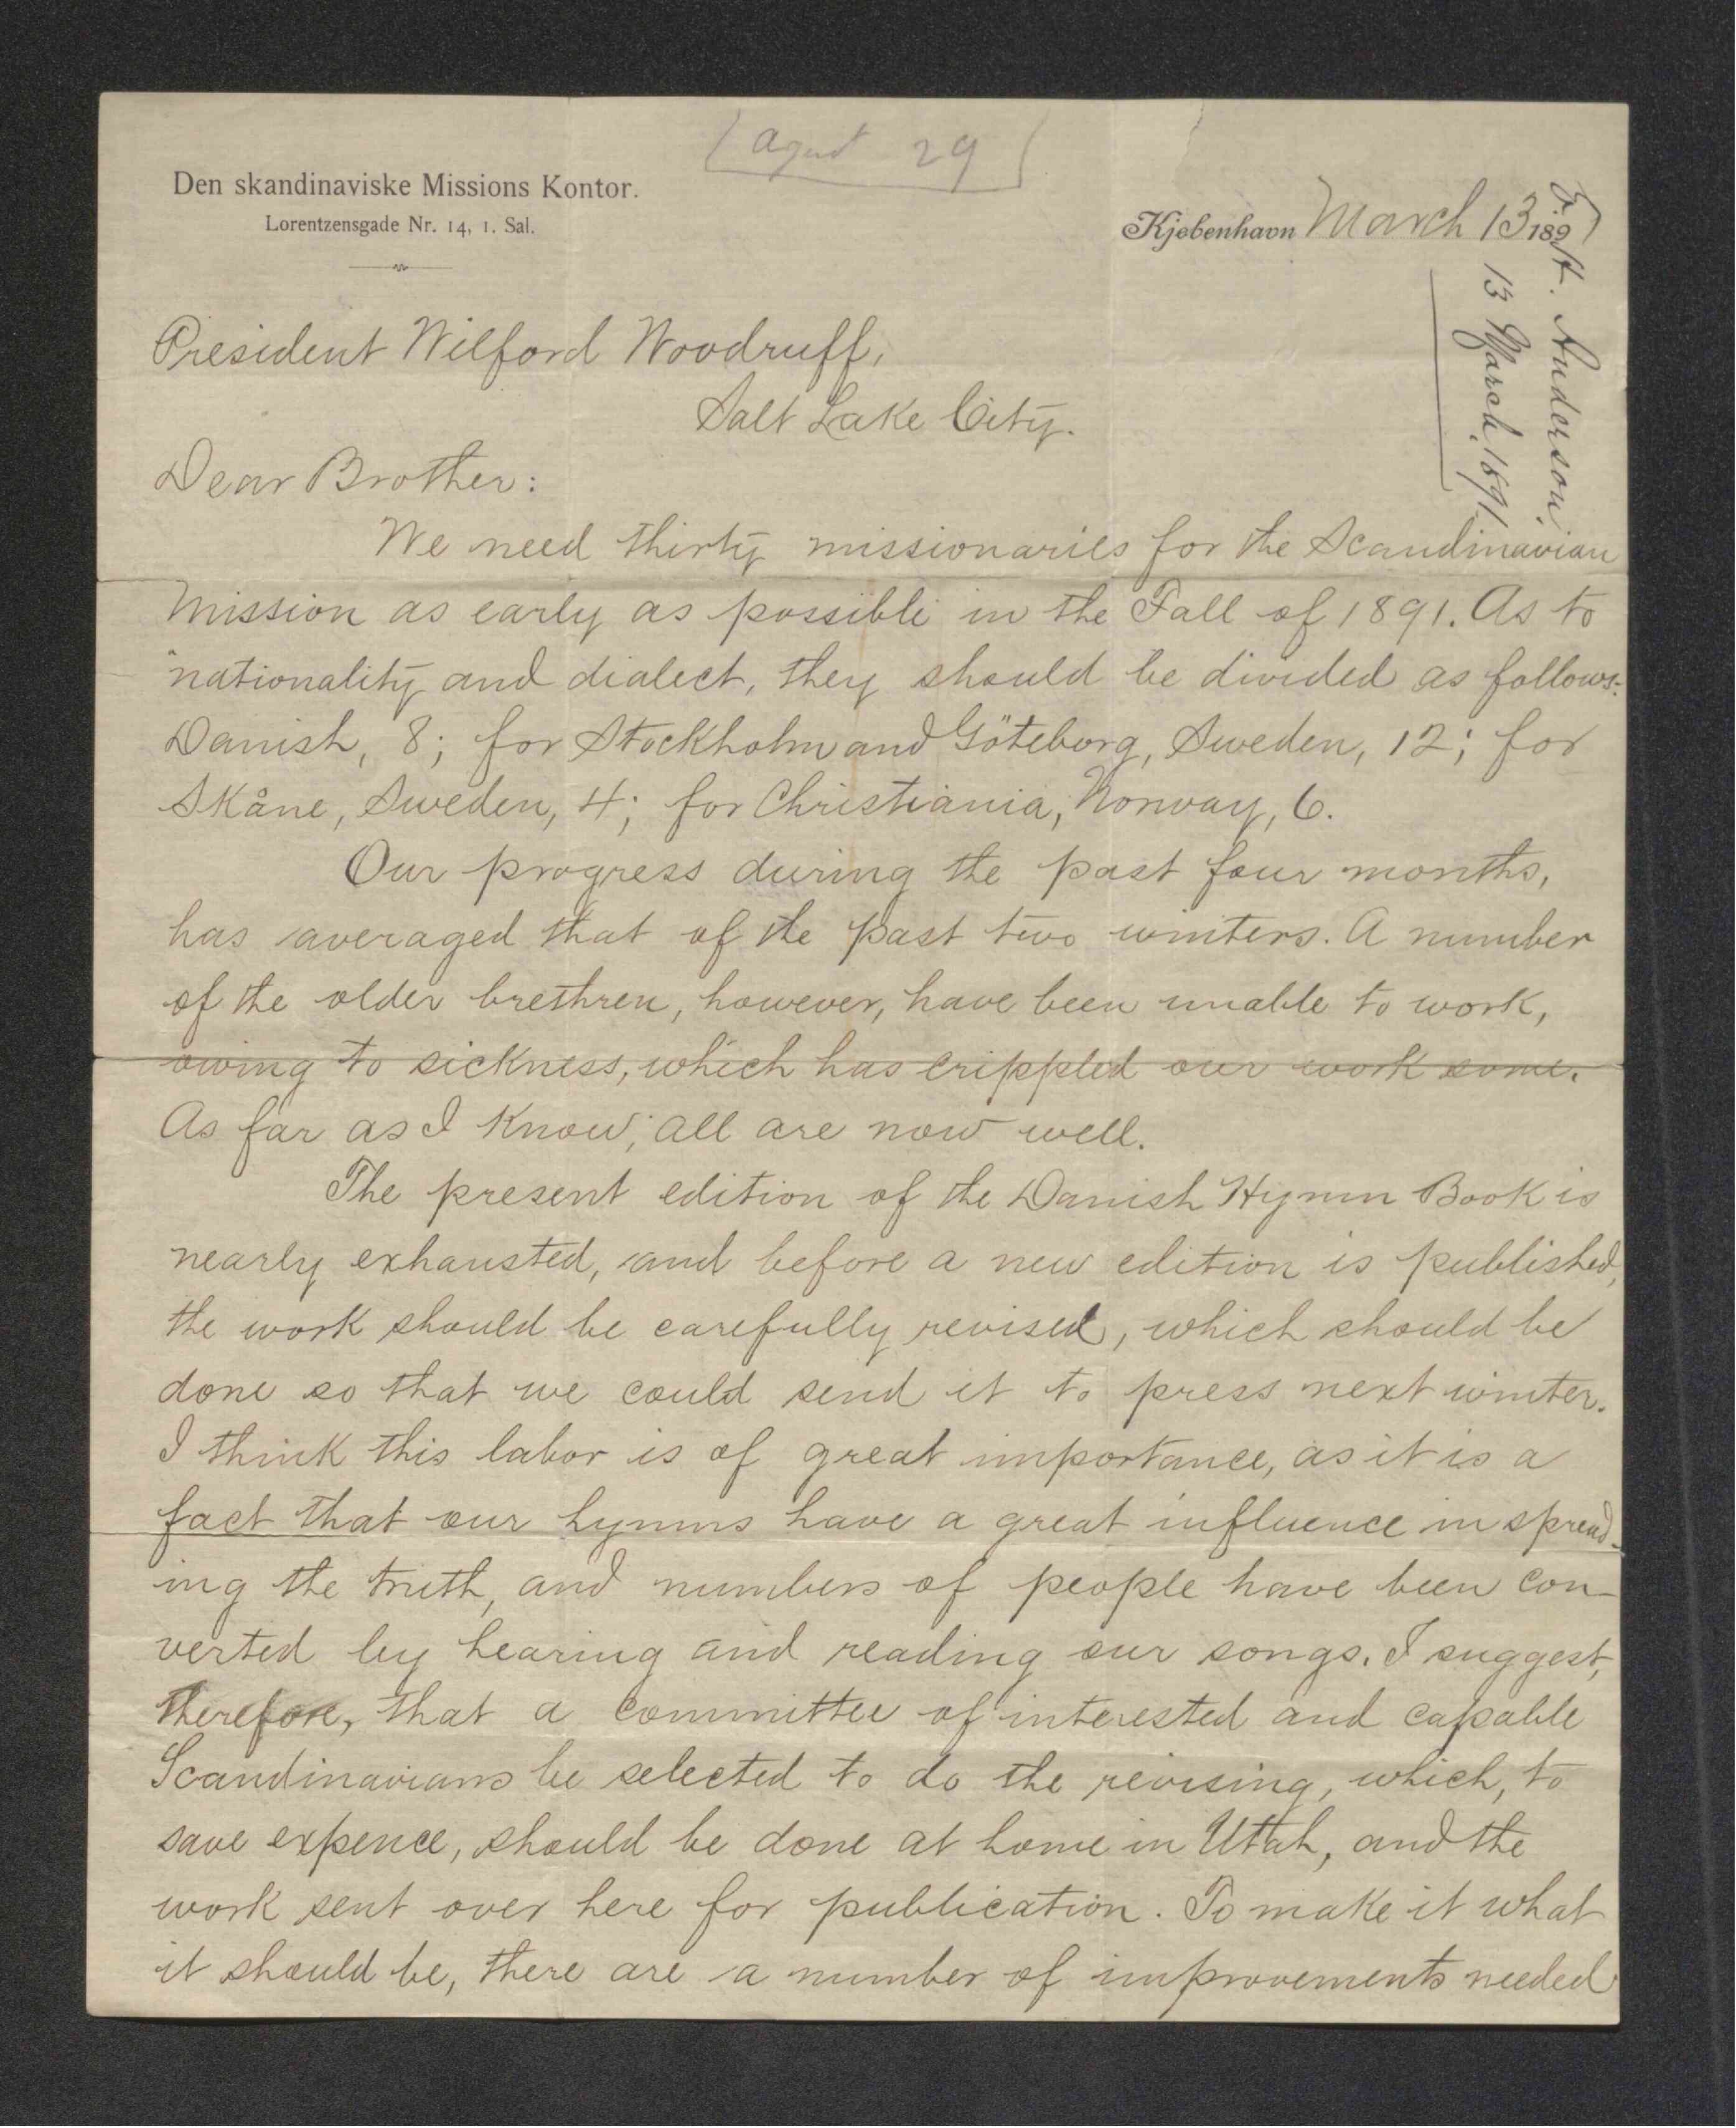 29
Den skandinaviske Missions Kontor.
Lorentzensgade Nr. 14, 1. Sal.
Kjøbenhavn March 13 1891
Anderson
13 March, 1891
President Wilford Woodruff,
Salt Lake City.
Dear Brother:
We need thirty missionaries for the Scandinavian
Mission as early as possible in the Fall of 1891. As to
nationality and dialect, they should be divided as follows:
Danish, 8; for Stockholm and Göteborg, Sweden, 12; for
Skåne, Sweden, 4; for Christiania, Norway, 6.
Our progress during the past four months,
has averaged that of the past two winters. A number
of the older brethren, however, have been unable to work,
owing to sickness, which has crippled our work some.
As far as I know, all are now well.
The present edition of the Danish Hymn Book is
nearly exhausted, and before a new edition is published,
the work should be carefully revised, which should be
done so that we could send it to press next winter.
I think this labor is of great importance, as it is a
fact that our hymns have a great influence in spread-
ing the truth, and numbers of people have been con-
verted by hearing and reading our songs. I suggest,
therefore, that a committee of interested and capable
Scandinavians be selected to do the revising, which, to
save expence, should be done at home in Utah, and the
work sent over here for publication. To make it what
it should be, there are a number of improvements needed